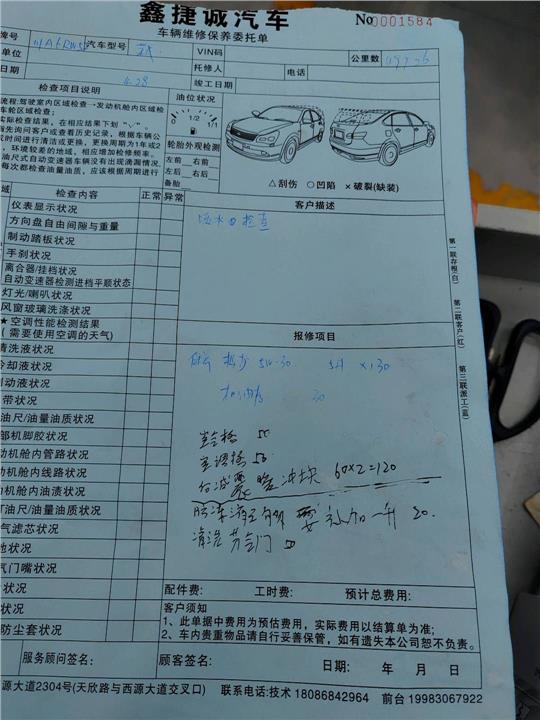 鑫捷诚汽车
车辆维修保养委托单
No 0001584
牌号 汽车型号 VIN码 公里数
单位 托修人 电话
日期 6.28 竣工日期
检查项目说明
油位状况
流程:驾驶室内区域检查→发动机舱内区域检
车轮区域检查;
实际检查,在相应结果下划
首先询问客户或查看历史记录,根据车辆公
或时间进行清洁或更换,更换周期为1年或2
,环境较差的地域,相应增加检修频率。
油尺式自动变速器车辆没有出现滴漏情况,
每次都检查油量油质,应该根据周期进行
0 1/2 1/1
轮胎外观检测
左前 右前
左后 右后
备胎
△刮伤 ○凹陷 × 破裂(缺装)
域 检查内容 正常 异常
客户描述
仪表显示状况
方向盘自由间隙与重量
制动踏板状况
手刹状况
离合器/挂档状况
自动变速器检测进档平顺状态
灯光/喇叭状况
风窗玻璃洗涤状况
★空调性能检测结果
(需要使用空调的天气)
检查
报修项目
清洗液状况
冷却液状况
制动液状况
带状况
油尺/油量油质状况
部机脚胶状况
动机舱内管路状况
动机舱内线路状况
动机舱内油渍状况
油尺/油量油质状况
气滤芯状况
池状况
气门嘴状况
状况
状况
防尘套状况
5W-30 5L ×130
30
空调格 50
60×2=120
一升 20.
清洗节气门 50
配件费: 工时费: 预计总费用:
客户须知
1、此单据中费用为预估费用,实际费用以结算单为准;
2、车内贵重物品请自行妥善保管,如有遗失本公司恕不负责。
服务顾问签名: 顾客签名: 日期: 年 月 日
源大道2304号(天欣路与西源大道交叉口) 联系电话:技术 18086842964 前台 19983067922
第一联存根(白)
第二联客户(红)
第三联派工(蓝)